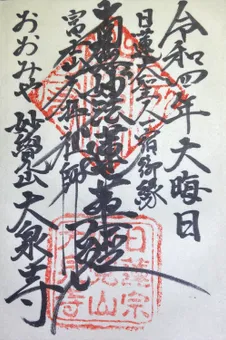 令和四年大晦日
日蓮大聖人一宿御
南無妙法蓮華経
富士山 祖師
おおみや 妙 山 大泉寺
日蓮宗
山
寺